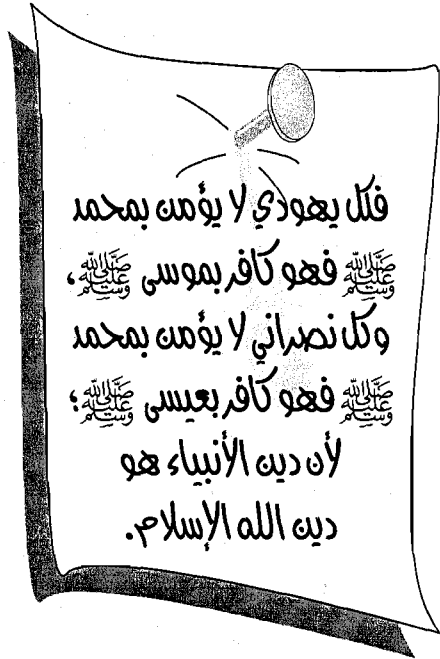 فكل يهودي لا يؤمن بمحمد
ﷺ فهو كافر بموسى ﷺ،
وكل نصراني لا يؤمن بمحمد
ﷺ فهو كافر بعيسى ﷺ؛
لأن دين الأنبياء هو
دين الله الإسلام.